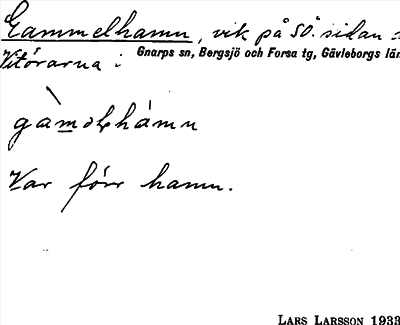 Gammelhamn, vik på SÖ. sidan
Vitörarna i Gnarps sn, Bergsjö och Forsa tg, Gävleborgs län
Var förr hamn.
LARS LARSSON 1933